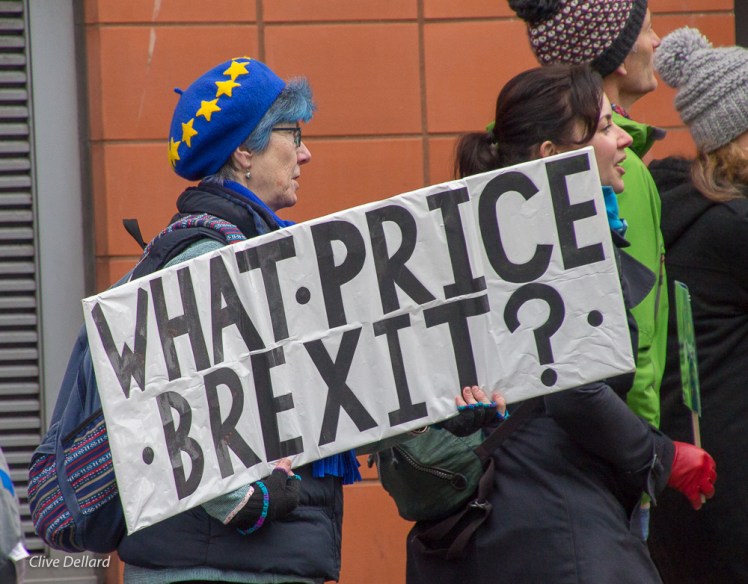 WHAT·PRICE
·BREXIT?·
Clive Dellard